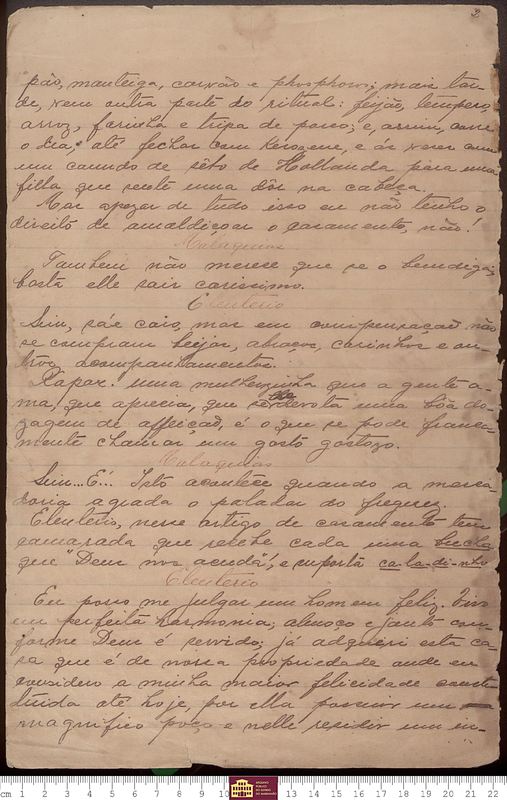 3
pão, manteiga, carvão e phosphoros; mais tar-
de, vem outra parte do ritual: feijão, tempero,
arroz, farinha e tripa de porco; e, assim, corre
o dia, até fechar com kerozene, e ás vezes com
um canudo de sêbo de Hollanda para uma
filha que sente uma dôr na cabeça.
Mas apezar de tudo isso eu não tenho o
direito de amaldiçoar o casamento, não!
Malaquias
Tambem não merece que se o bemdiga;
basta elle sair carissimo.
Eleuterio
Sim, sáe caro, mas em compensação não
se compram beijos, abraços, carinhos e ou-
tros acompanhamentos.
Rapaz! uma mulherzinha que a gente a-
ma, que aprecia, que devota uma bôa do-
zagem de affeição, é o que se pode franca-
mente chamar um gosto gostozo.
Malaquias
Sim... É... Isto acontece quando a merca-
doria agrada o paladar do freguez.
Eleuterio, nesse artigo de casamento tem
camarada que recebe cada uma bucha
que "Deus nos acuda", e suporta ca-la-di-nho.
Eleuterio
Eu posso me julgar um homem feliz. Vivo
em perfeita harmonia; almoço e janto con-
forme Deus é servido; já adqueri esta ca-
sa que é de nossa propriedade onde eu
considero a minha maior felicidade consti-
tuida até hoje, por ella possuir um
magnifico poço e nelle residir um in-
cm 1 2 3 4 5 6 7 8 9 10 13 14 15 16 17 18 19 20 21 22
ARQUIVO
PÚBLICO
DO ESTADO
DO MARANHÃO